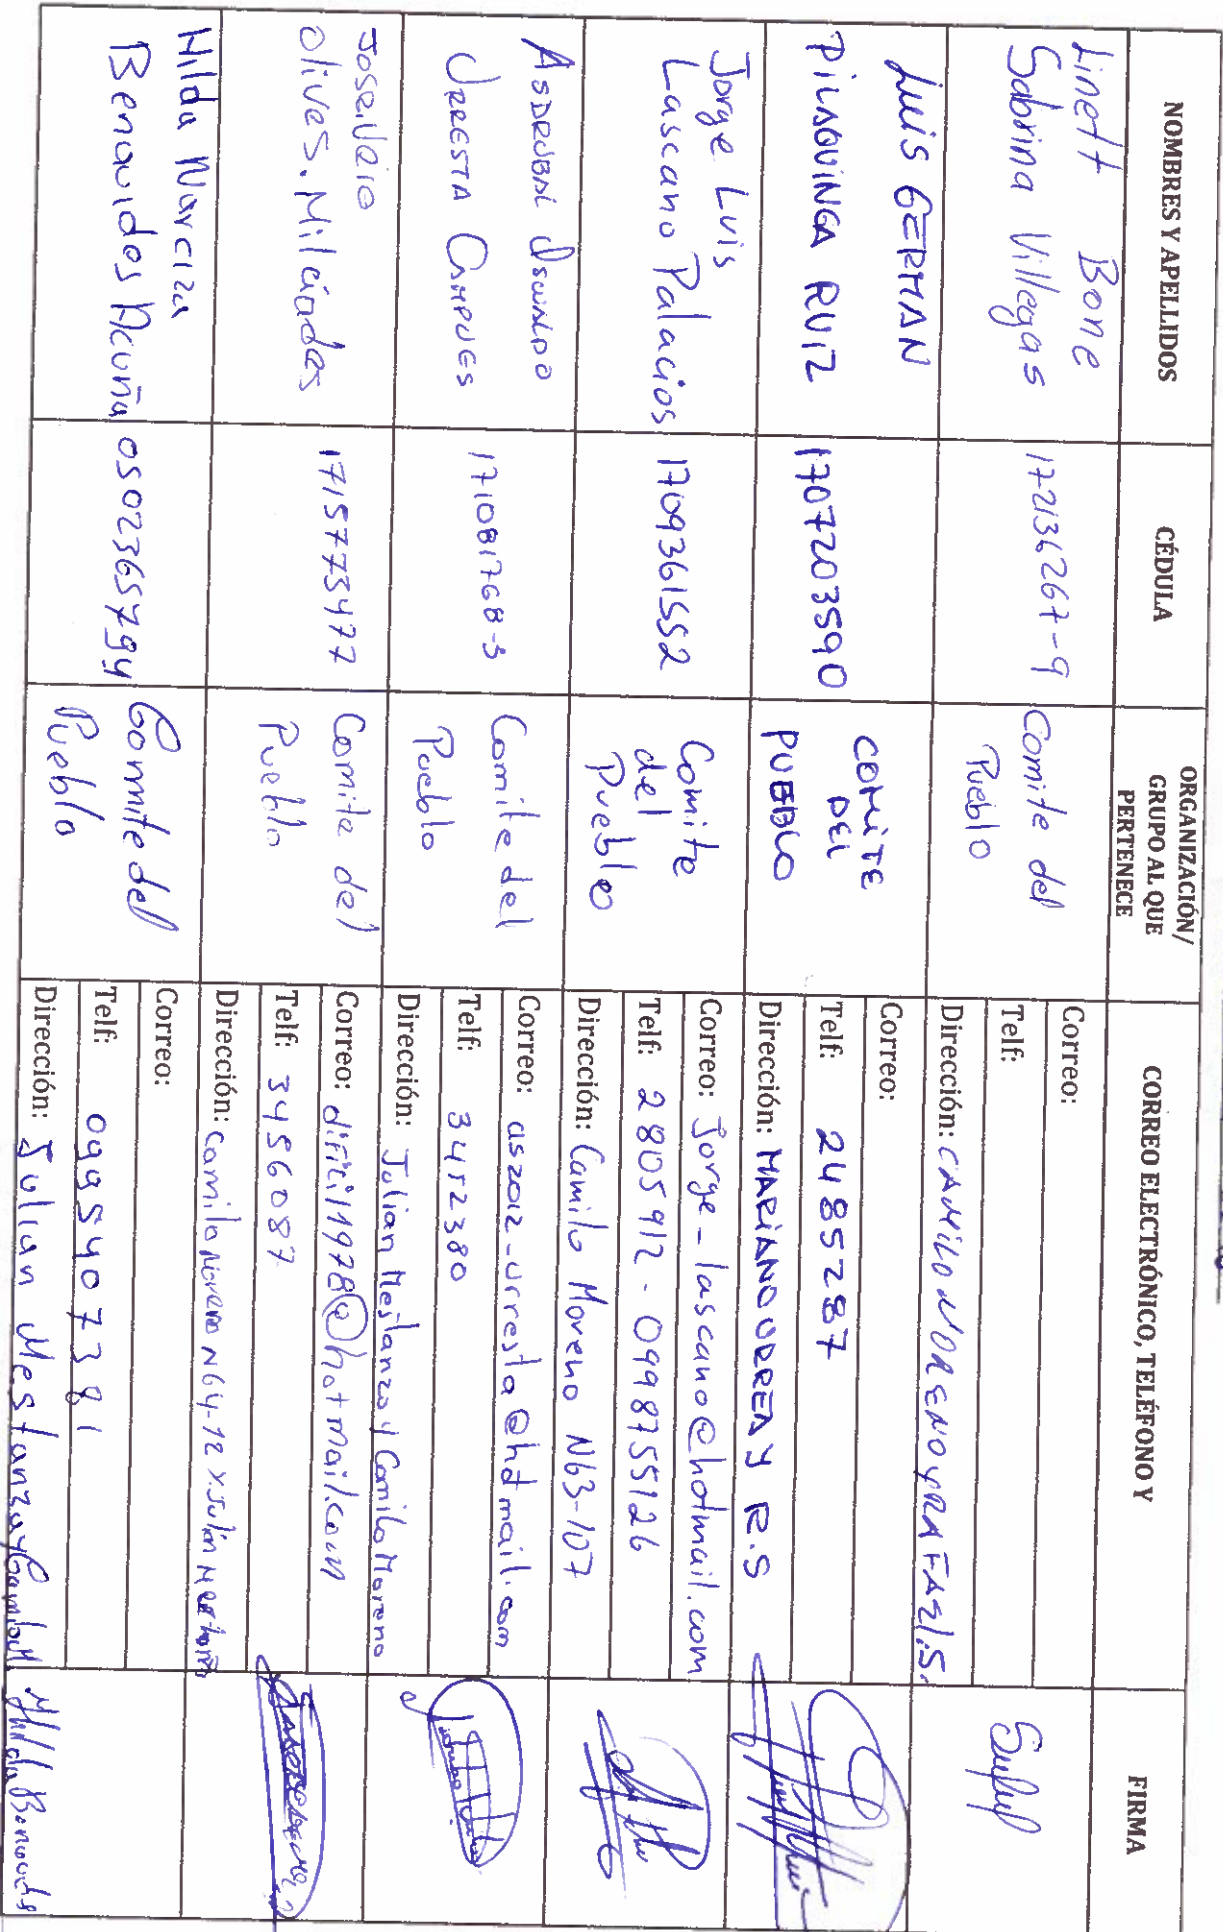 NOMBRES Y APELLIDOS
CÉDULA
ORGANIZACIÓN/
GRUPO AL QUE
PERTENECE
CORREO ELECTRÓNICO, TELÉFONO Y
FIRMA
Linett Bone
Sabrina Villegas
172136267-9
Comite del
Pueblo
Correo:
Telf:
Dirección: CAMILO MORENO y RAFAEL S.
Luis GERMAN
PILAQUINGA RUIZ
1707203590
COMITE
DEL
PUEBLO
Correo:
Telf: 2485287
Dirección: MARIANO URREA y R.S
Jorge Luis
Lascano Palacios
1709361552
Comite
del
Pueblo
Correo: Jorge-lascano@hotmail.com
Telf: 2805912 - 0998755126
Dirección: Camilo Moreno N63-107
ASDRUBAL OSWALDO
URRESTA CAMPUES
171081768-3
Comite del
Pueblo
Correo: aszoiz-urresta@hotmail.com
Telf: 3452380
Dirección: Julian Mestanza y Camilo Moreno
olives. Milciades
1715773477
Comite del
Pueblo
Correo: dificil1978@hotmail.com
Telf: 3456087
Dirección: Camilo Moreno N64-12 y Julin
Hilda Narciza
Benavides Acuña
0502365794
Comite del
Pueblo
Correo:
Telf: 0995407381
Dirección: Julian Mestanza y Camilo M.
Hilda Benavides